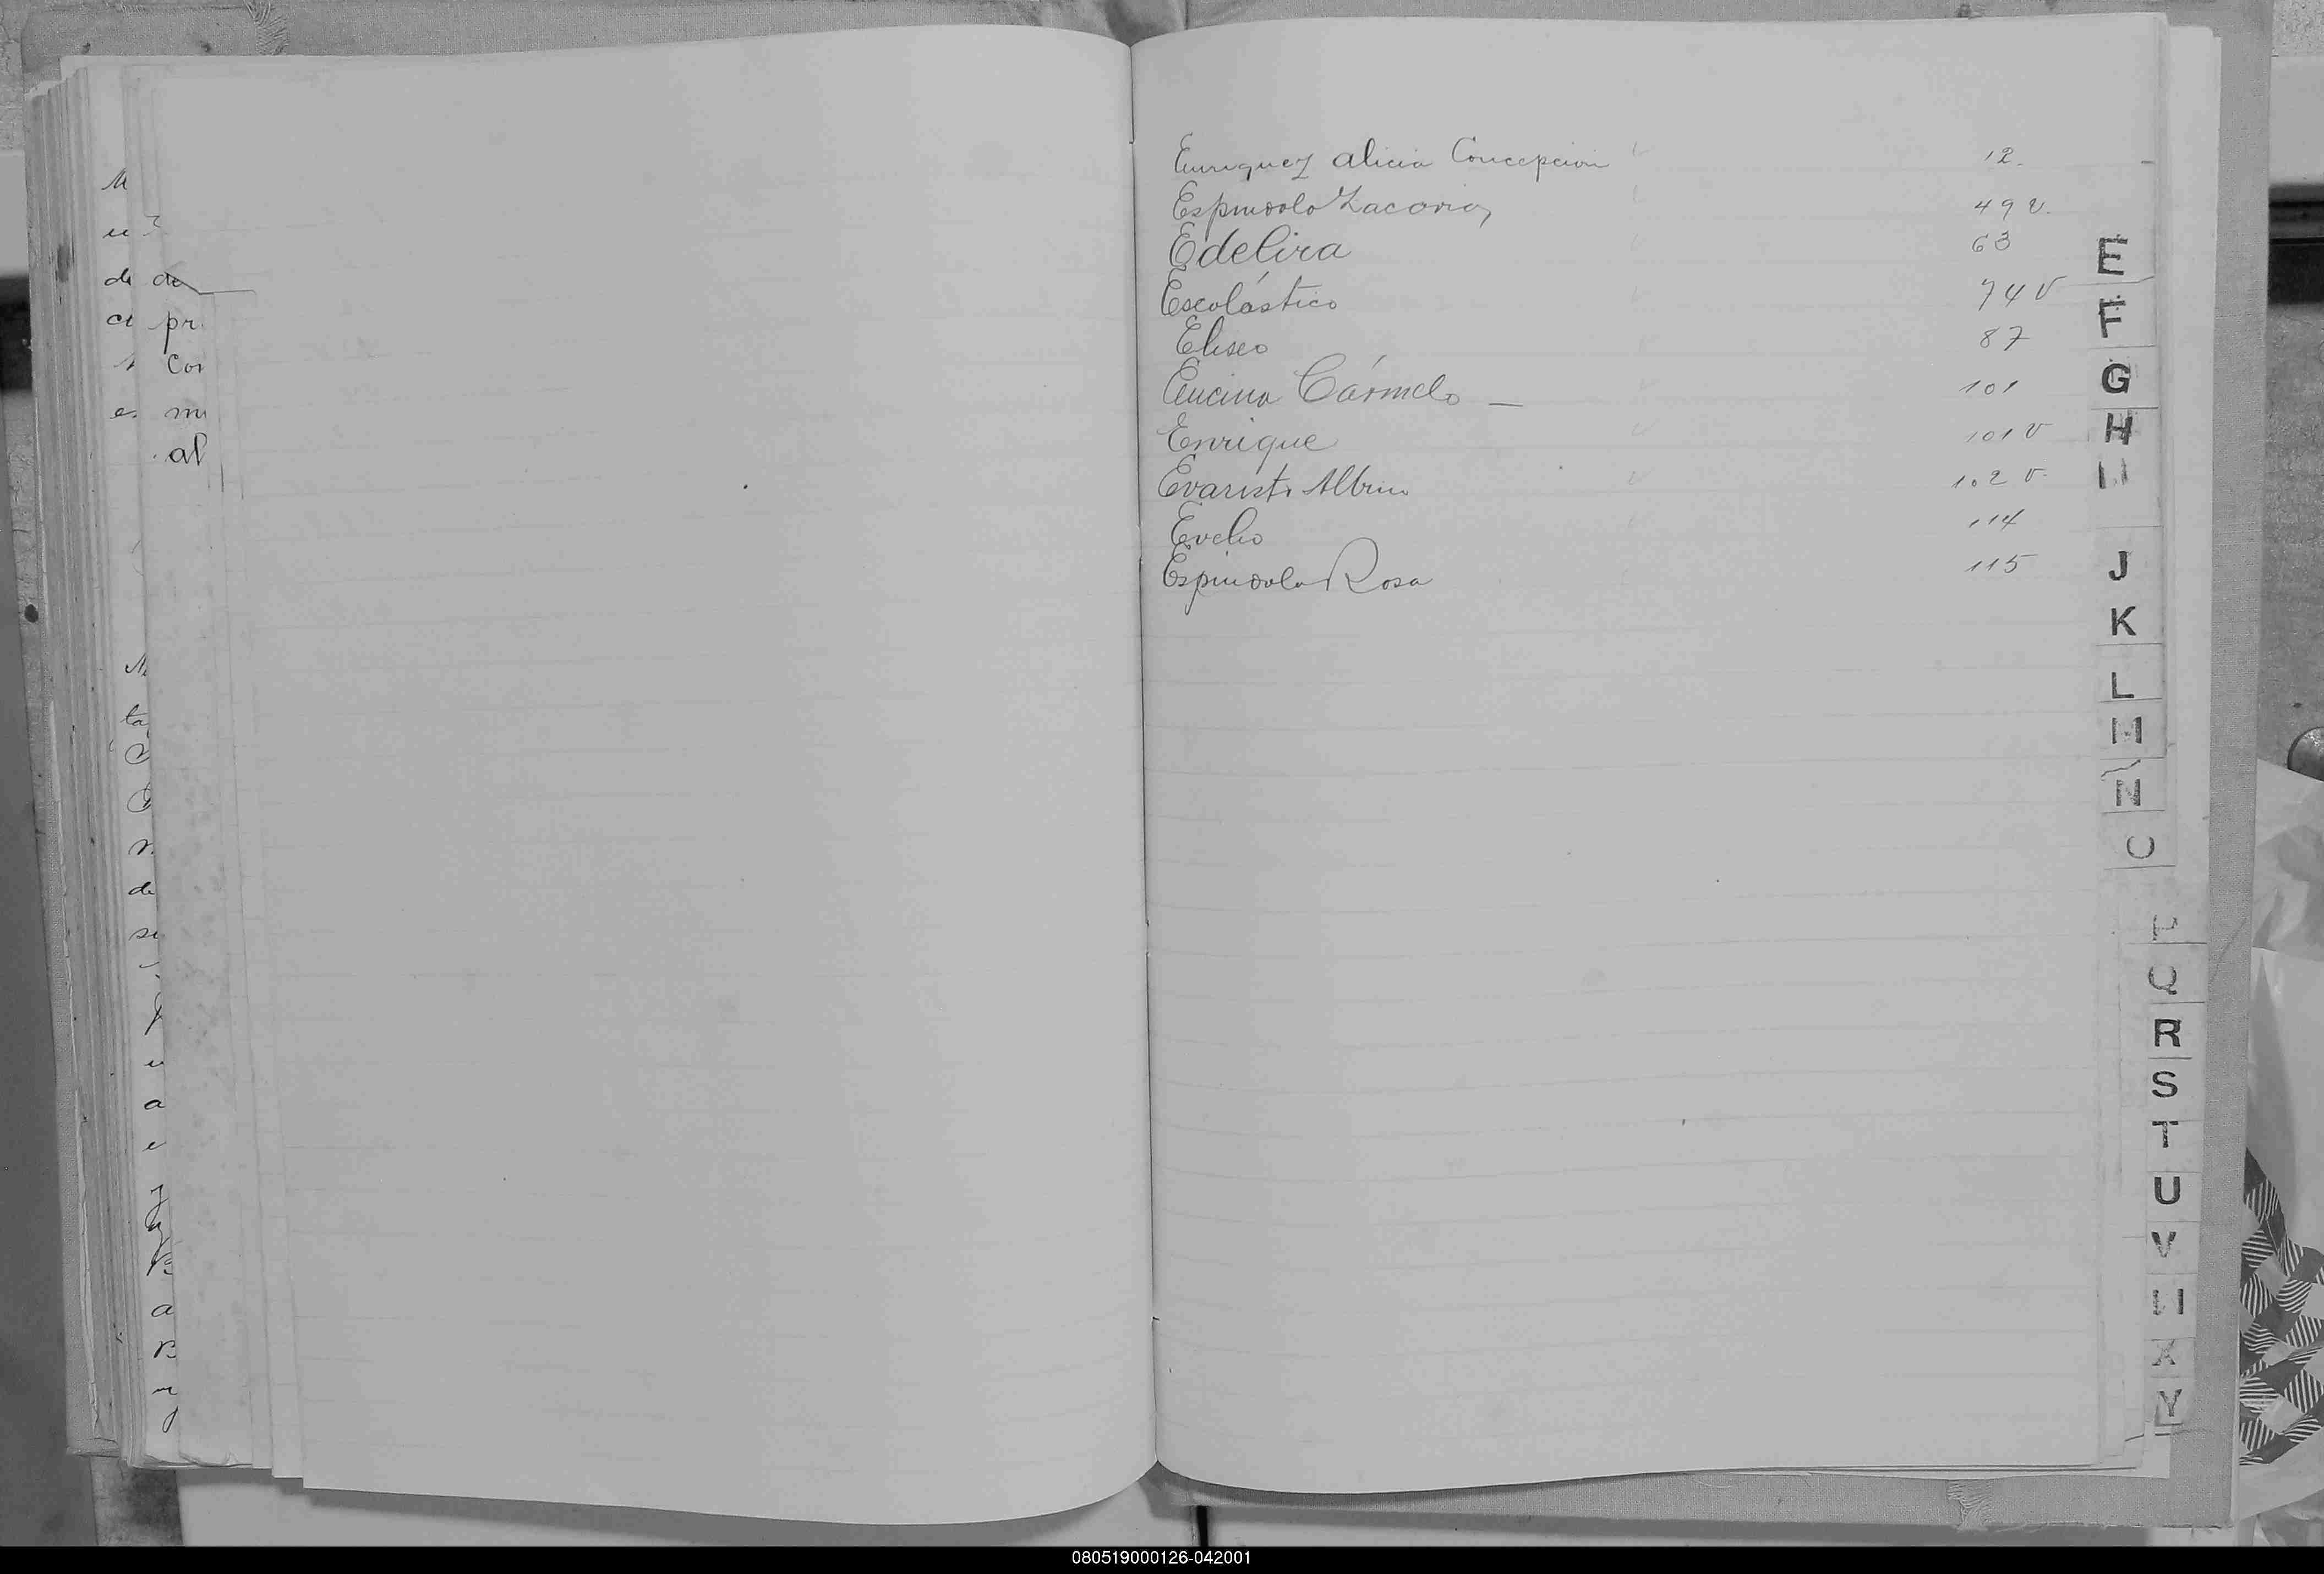 Enriquez Alicia Concepcion 12.
Espindolo Zacarias 49 v.
Edelira 63
Escolástico 74 v
Eliseo 87
Encina Cármelo — 101
Enrique 101 v
Evaristo Albino 102 v.
Evelio 114
Espindola Rosa 115
E
F
G
H
J
K
L
M
N
O
P
Q
R
S
T
U
V
X
Y
M
de
pr
Con
es
al
ta
de
a
080519000126-042001